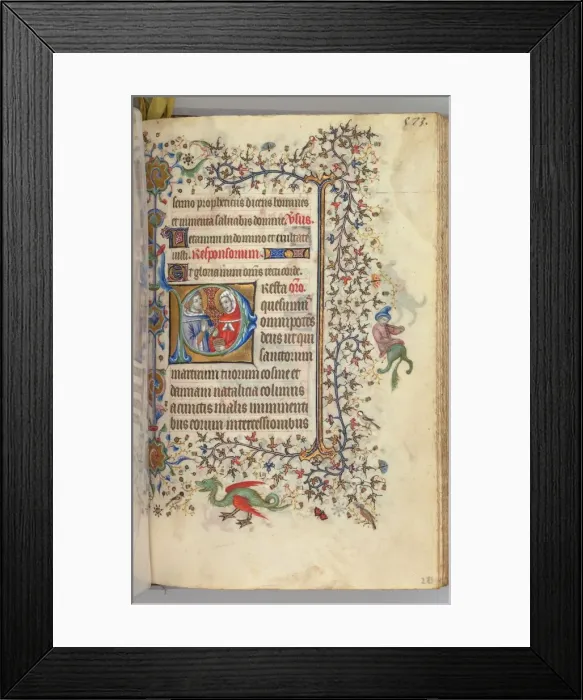 sermo propheticus dicens homines
et iumenta saluabis domine. Vsus.
Letamini in domino et exultate
iusti. Responsorium.
Et gloriamini om̄s recti corde.
Presta oro.
quesumus
omnipotens
deus ut qui
sanctorum
martirum tuorum cosme et
damiani natalicia colimus
a cunctis malis imminenti
bus eorum intercessionibus